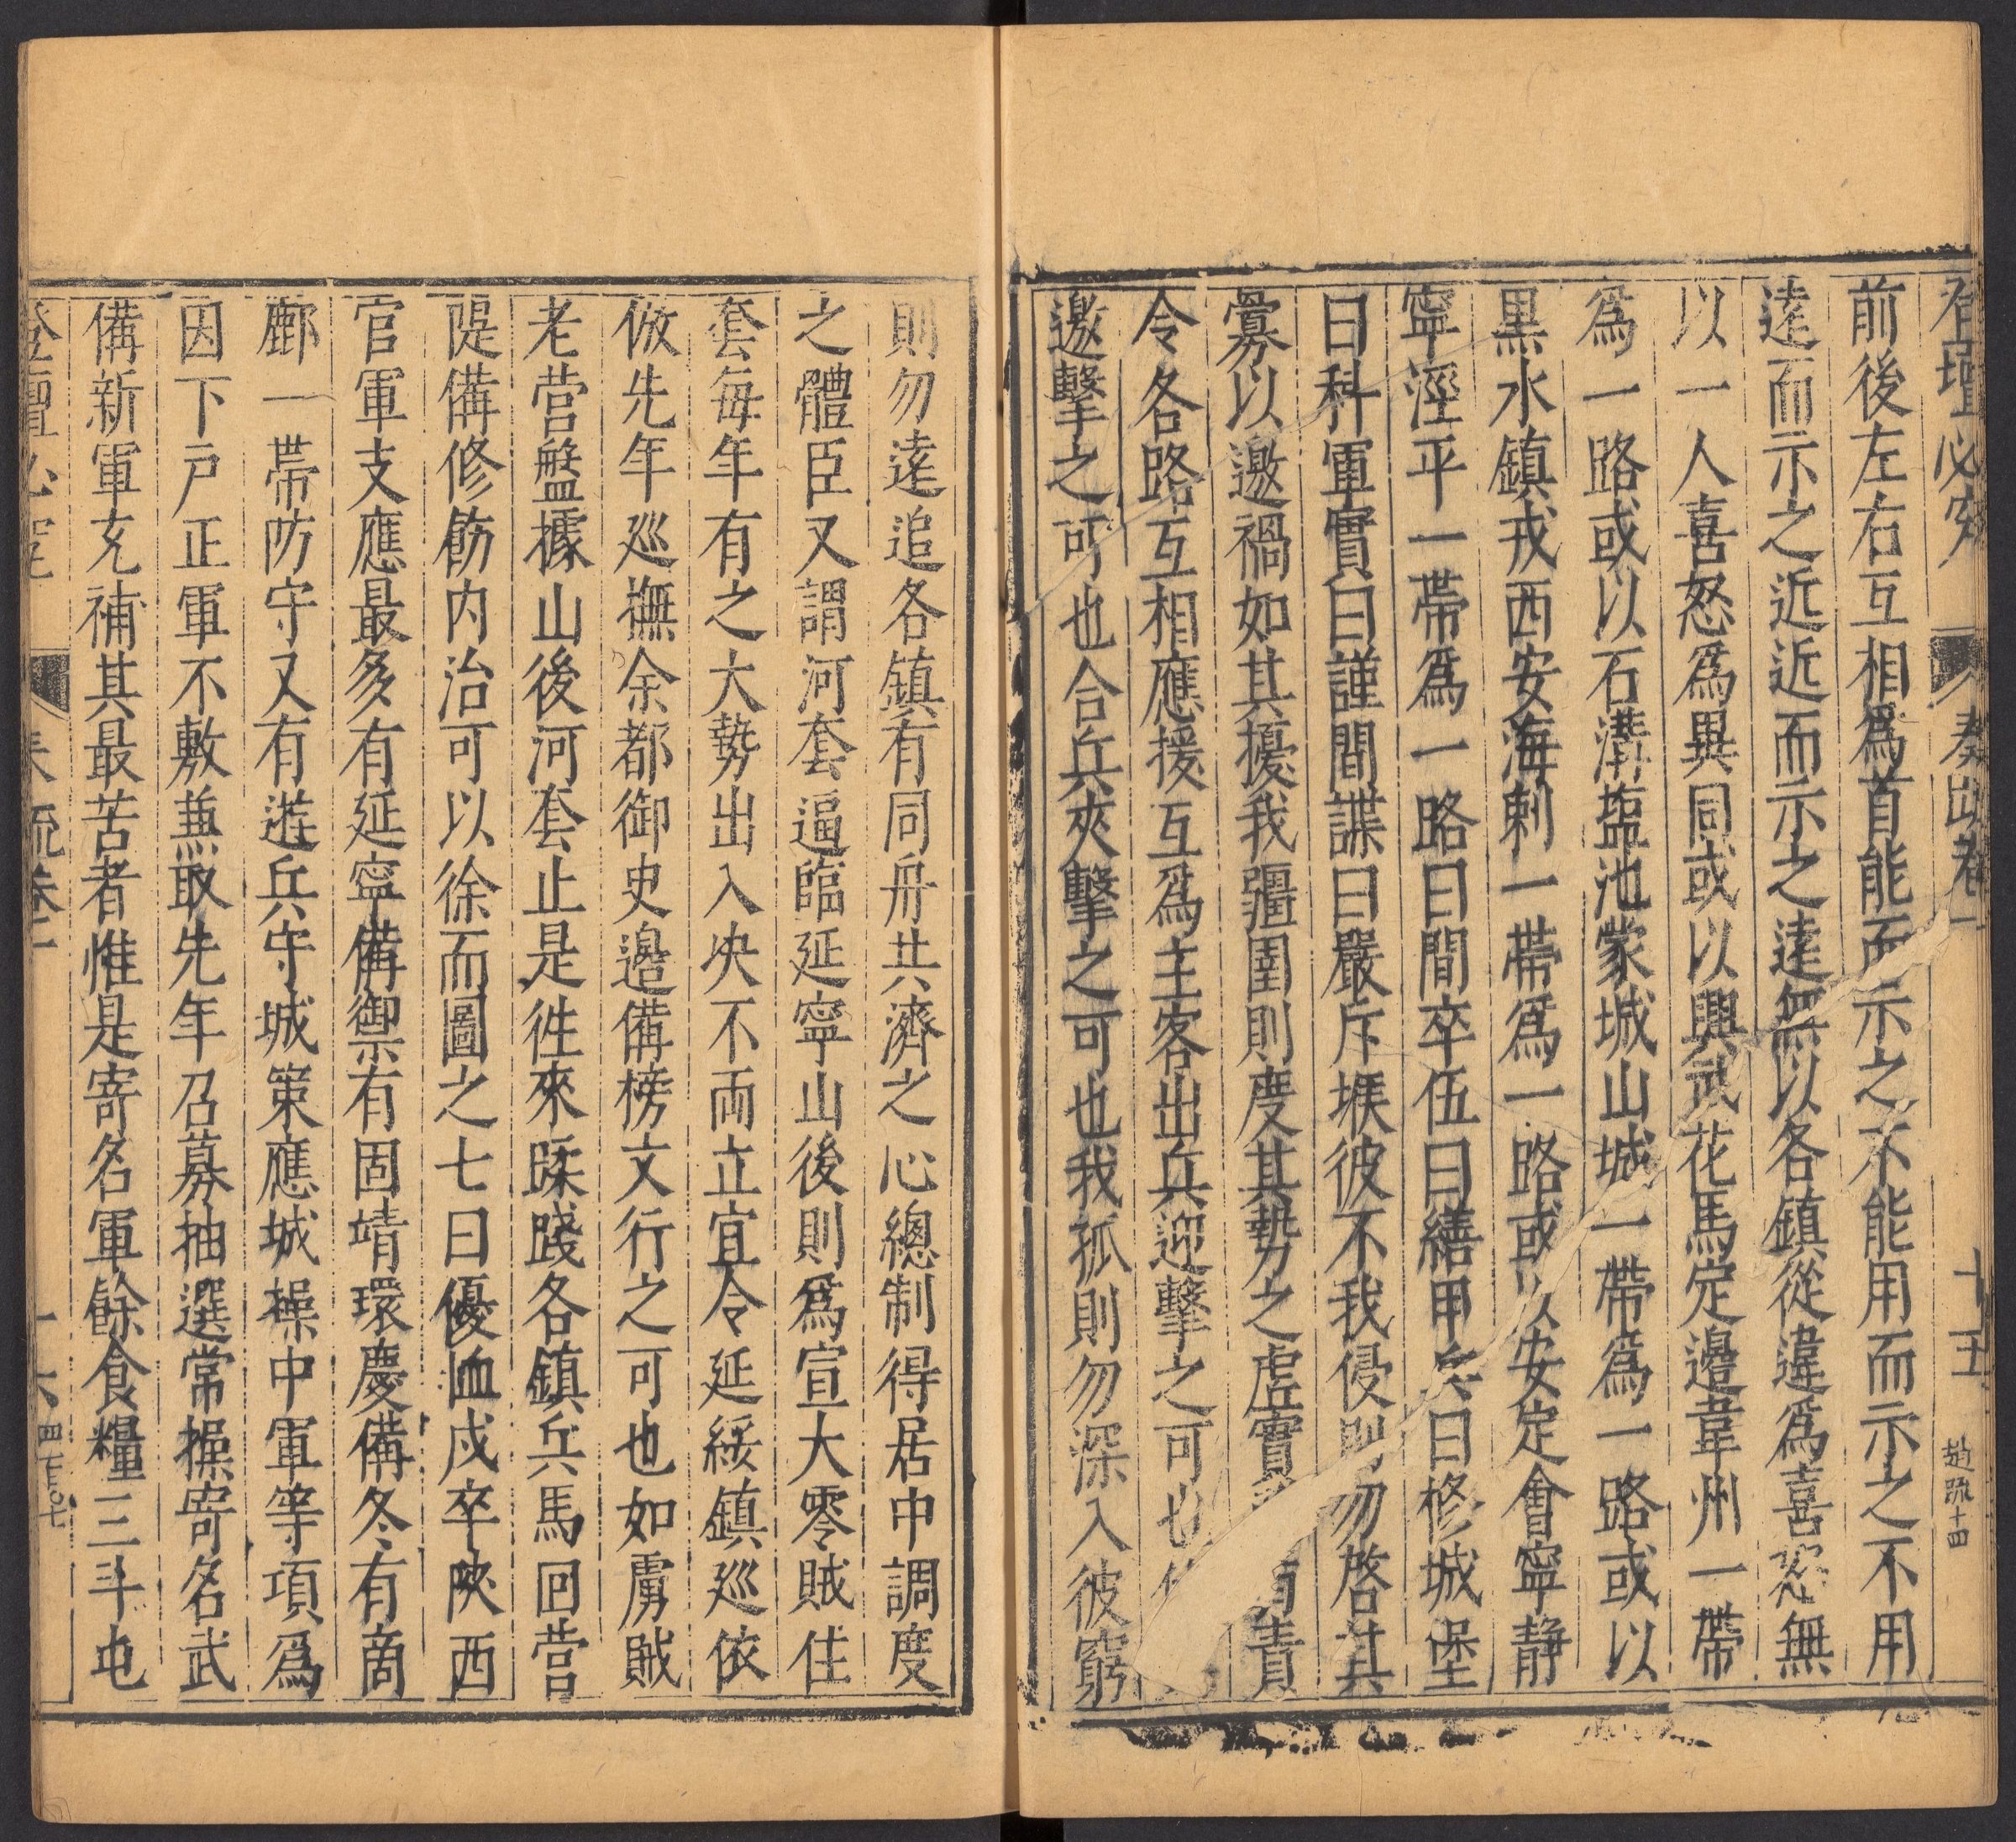 登壇必究 奏疏卷一 十五 趙疏十四
前後左右互相爲首能而示之不能用而示之不用
遠而示之近近而示之遠無以各鎮從違爲喜怒無
以一人喜怒爲異同或以興武花馬定邊韋州一帶
爲一路或以石溝塩池蒙城山城一帶爲一路或以
黒水鎮戎西安海剌一帶爲一路或以安定會寧靜
寧涇平一帶爲一路曰間卒伍曰繕甲兵曰修城堡
曰科軍實曰謹間諜曰嚴斥堠彼不我侵則勿啓其
釁以邀禍如其擾我疆圉則度其勢之虛實 責
令各路互相應援互爲主客出兵迎擊之可也
邀擊之可也合兵夾擊之可也我孤則勿深入彼窮
則勿遠追各鎮有同舟共濟之心總制得居中調度
之體臣又謂河套逼臨延寧山後則爲宣大零賊住
套每年有之大勢出入决不両立宜令延綏鎮巡依
倣先年巡撫余都御史邊備榜文行之可也如虜賊
老营盤據山後河套止是徃來蹂踐各鎮兵馬回营
隄備修飭内治可以徐而圖之七曰優恤戍卒陝西
官軍支應最多有延寧備禦有固靖環慶備冬有商
鄜一帶防守又有遊兵守城策應城操中軍等項爲
因下戸正軍不敷兼取先年召募抽選常操寄名武
備新軍充補其最苦者惟是寄名軍餘食糧三斗屯
登壇必究 奏疏卷一 十六